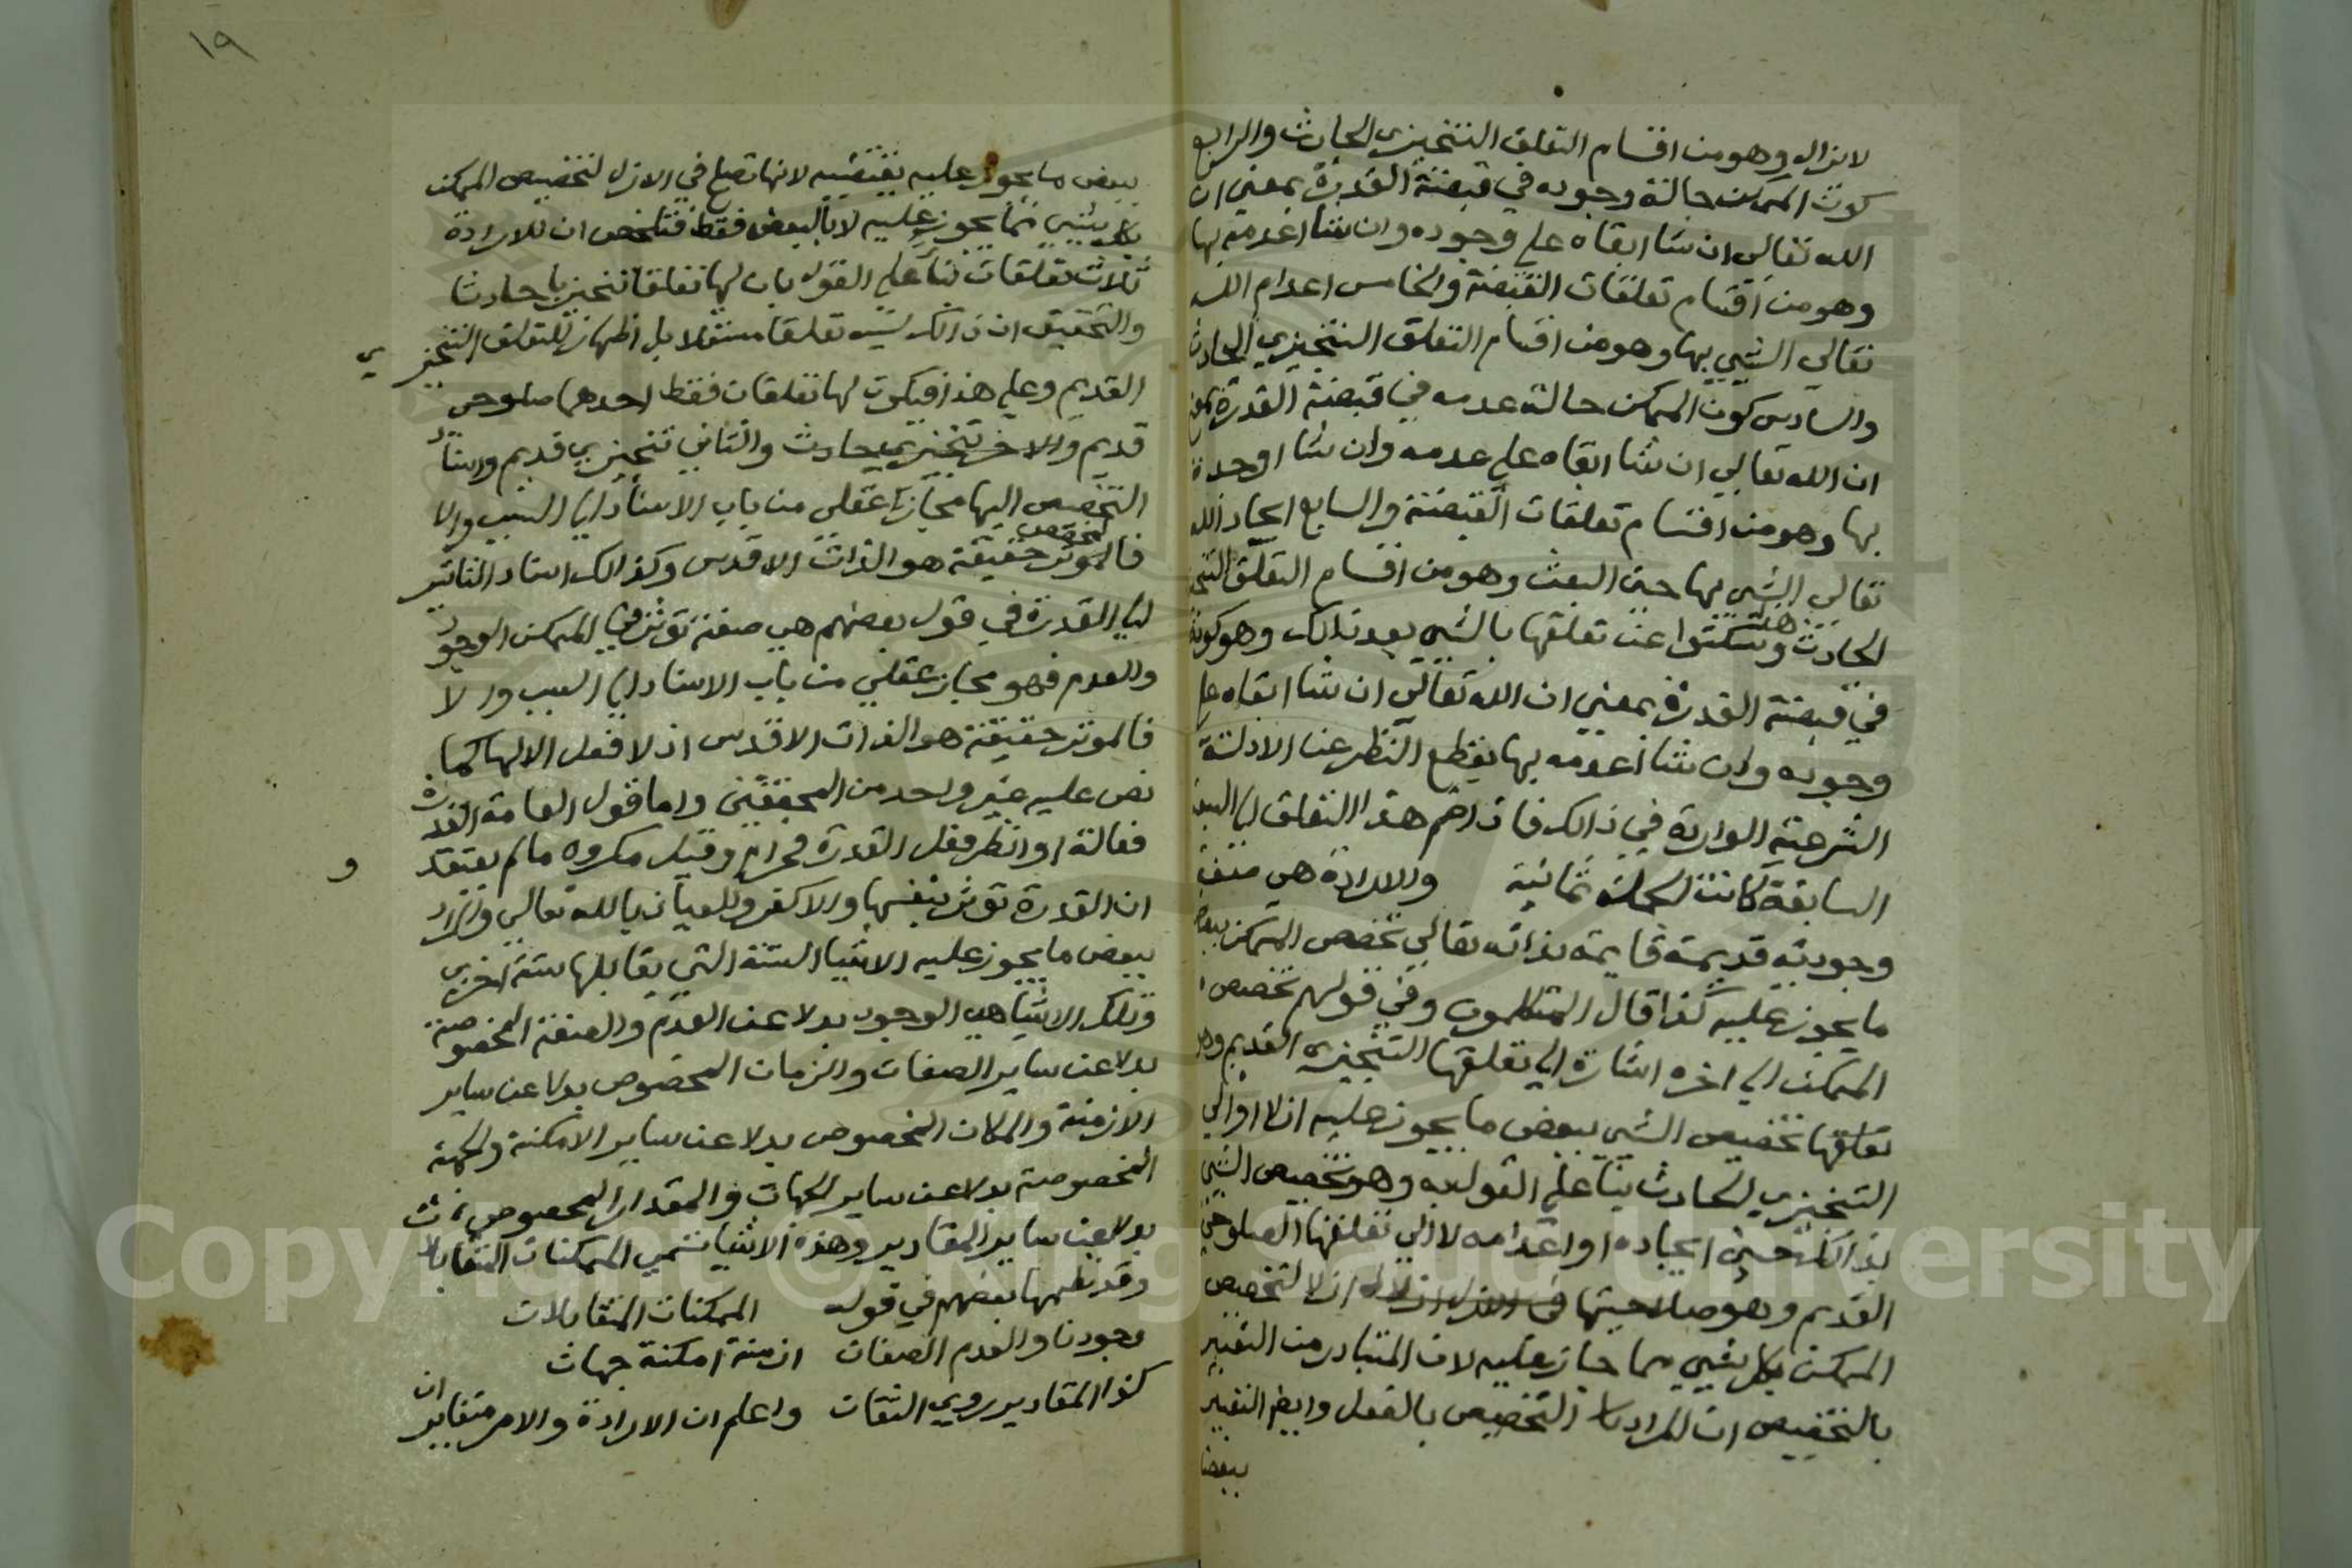 لايزال وهو من اقسام التعلق التنجيزي الحادث والرابع
كون الممكن حالة وجوده في قبضة القدرة بمعني ان
الله تعالي ان شا ابقاه علي وجوده وان شا اعدمه بها
وهو من اقسام تعلقات القبضة والخامس اعدام الله
تعالي الشيي بها وهو من اقسام التعلق التنجيزي الحادث
والسادس كون الممكن حالة عدمه في قبضة القدرة بمعني
ان الله تعالي ان شا ابقاه علي عدمه وان شا اوجده
بها وهو من اقسام تعلقات القبضة والسابع ايجاد الله
تعالي الشي بها حين البعث وهو من اقسام التعلق التنجيزي
الحادث وسكتوا عن تعلقها بالشي بعد ذالك وهو كونه
في قبضة القدرة بمعني ان الله تعالي ان شا ابقاه علي
وجوده وان شا اعدمه بها بقطع النظر عن الادلة
الشرعية الواردة في ذالك فاذا ضم هذا التعلق الي السبعة
السابقة كانت الجملة ثمانية والارادة هي صفة
وجودية قديمة قايمة بذاته تعالي تخصص الممكن ببعض
ما يجوز عليه كذا قال المتكلمون وفي قولهم تخصص
الممكن الي اخره اشارة الي تعلقها التنجيزي القديم وهو
تعلقها تخصيص الشيي ببعض ما يجوز عليه ازلا او الي
التنجيزي الحادث بنا علي القول به وهو تخصيص الشيي
بذالك حين ايجاده او اعدامه لا الي تعلقها الصلوحي
القديم وهو صلاحيتها في الازل ازلا لتخصيص
الممكن بكل شيي مما جاز عليه لان المتبادر من التعبير
بالتخصيص ان المراد التخصيص بالفعل وايضا التعبير
ببعض
١٩
ببعض ما يجوز عليه يقتضيه لانها تصلح في الازل لتخصيص الممكن
بكل شيي مما يجوز عليه لا بالبعض فقط فتلخص ان للارادة
ثلاث تعلقات بنا علي القول بان لها تعلقا تنجيزيا حادثا
والتحقيق ان ذالك ليس تعلقا مستقلا بل اظهار للتعلق التنجيزي
القديم وعلي هذا فيكون لها تعلقان فقط احدهما صلوحي
قديم والاخر تنجيزي حادث والثاني تنجيزي قديم واسناد
التخصيص اليها مجاز عقلي من باب الاسناد الي السبب والا
فالموثر المخصص حقيقة هو الذات الاقدس وكذالك اسناد التاثير
الي القدرة في قول بعضهم هي صفة توثر في الممكن الوجود
والعدم فهو مجاز عقلي من باب الاسناد الي السبب والا
فالموثر حقيقة هو الذات الاقدس اذ لا فعل الا لها كما
نص عليه غير واحد من المحققين واما قول العامة القدرة
فعالة او انظر فعل القدرة فحرام وقيل مكروه ما لم يعتقد
ان القدرة توثر بنفسها والا كفر والعياذ بالله تعالي والمراد
ببعض ما يجوز عليه الاشيا الستة التي يقابلها ستة اخري
وتلك الاشيا هي الوجود بدلا عن العدم والصفة المخصوصة
بدلا عن ساير الصفات والزمان المخصوص بدلا عن ساير
الازمنة والمكان المخصوص بدلا عن ساير الامكنة والجهة
المخصوصة بدلا عن ساير الجهات والمقدار المخصوص
بدلا عن ساير المقادير وهذه الاشيا تسمي الممكنات المتقابلات
وقد نظمها بعضهم في قوله الممكنات المتقابلات
وجودنا والعدم الصفات ازمنة امكنة جهات
كذا المقادير روي الثقات واعلم ان الارادة والامر متغايران